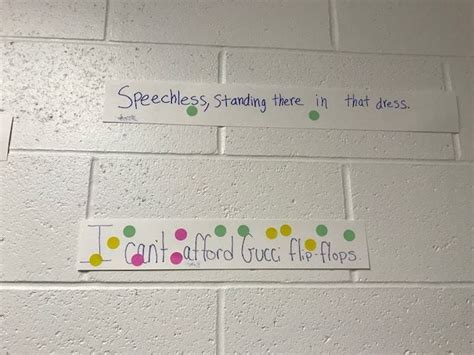 Speechless, Standing there in that dress.
I can't afford Gucci flip-flops.